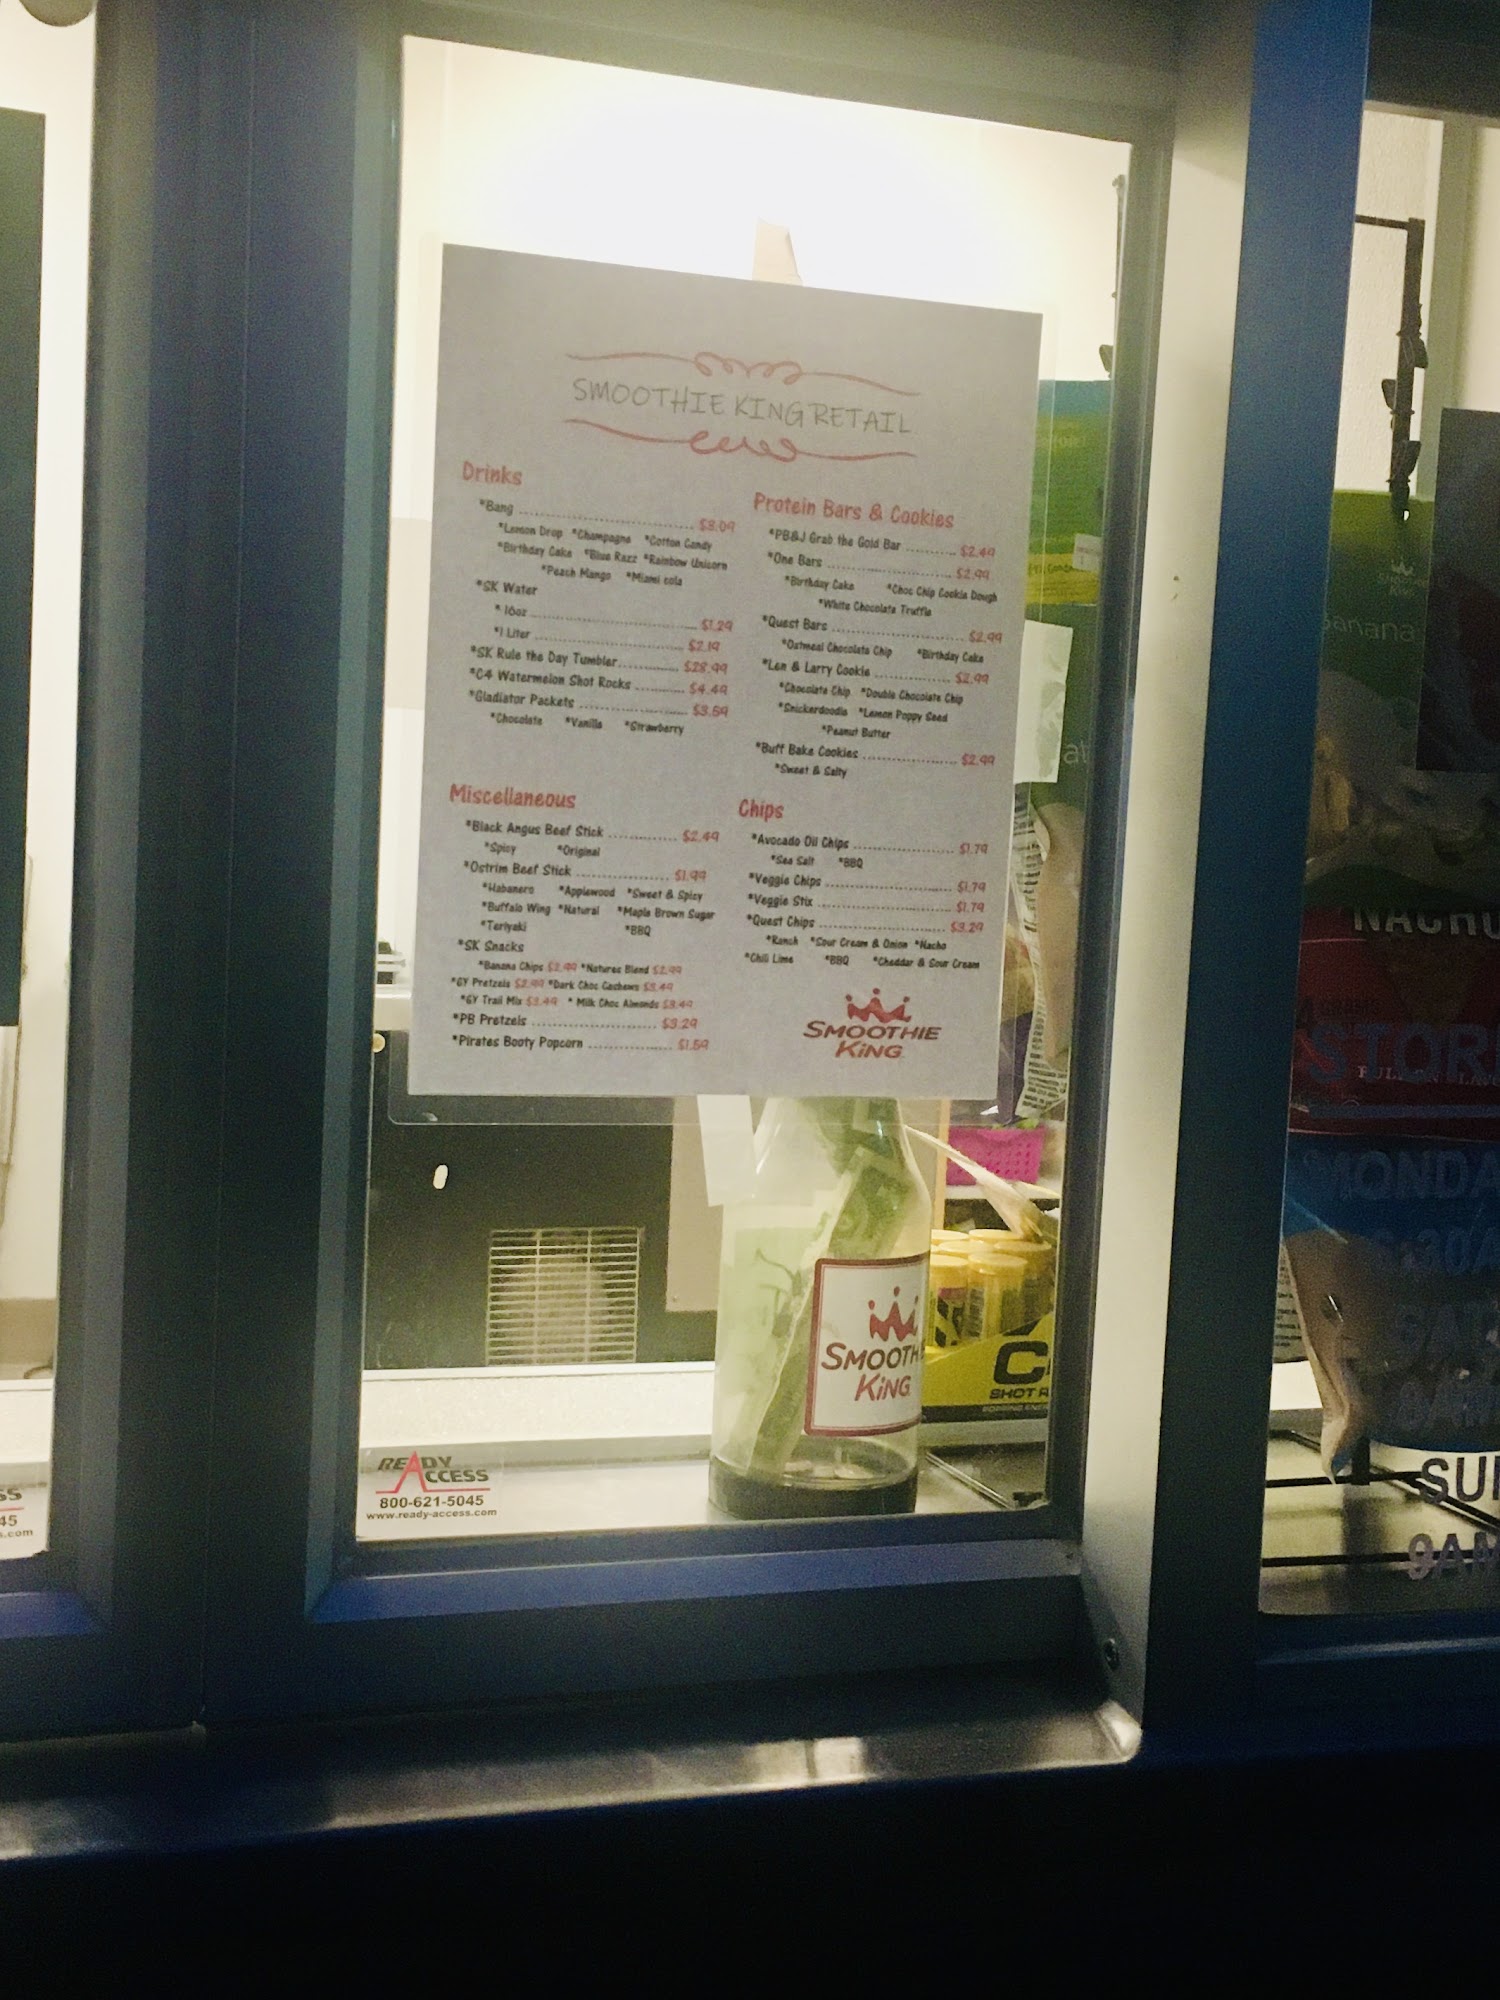 SMOOTHIE KING RETAIL
Drinks
*Bang ........ $3.09
*Lemon Drop *Champagne *Cotton Candy
*Birthday Cake *Blue Razz *Rainbow Unicorn
*Peach Mango *Miami cola
*SK Water
*16oz ........ $1.29
*1 Liter ........ $2.19
*SK Rule the Day Tumbler ........ $28.99
*C4 Watermelon Shot Rocks ........ $4.49
*Gladiator Packets ........ $3.59
*Chocolate *Vanilla *Strawberry
Miscellaneous
*Black Angus Beef Stick ........ $2.49
*Spicy *Original
*Ostrim Beef Stick ........ $1.99
*Habanero *Applewood *Sweet & Spicy
*Buffalo Wing *Natural *Maple Brown Sugar
*Teriyaki *BBQ
*SK Snacks
*Banana Chips $2.99 *Natures Blend $2.99
*GY Pretzels $2.99 *Dark Choc Cashews $3.49
*GY Trail Mix $3.49 * Milk Choc Almonds $3.49
*PB Pretzels ........ $3.29
*Pirates Booty Popcorn ........ $1.59
Protein Bars & Cookies
*PB&J Grab the Gold Bar ........ $2.49
*One Bars ........ $2.99
*Birthday Cake *Choc Chip Cookie Dough
*White Chocolate Truffle
*Quest Bars ........ $2.99
*Oatmeal Chocolate Chip *Birthday Cake
*Len & Larry Cookie ........ $2.99
*Chocolate Chip *Double Chocolate Chip
*Snickerdoodle *Lemon Poppy Seed
*Peanut Butter
*Buff Bake Cookies ........ $2.99
*Sweet & Salty
Chips
*Avocado Oil Chips ........ $1.79
*Sea Salt *BBQ
*Veggie Chips ........ $1.79
*Veggie Stix ........ $1.79
*Quest Chips ........ $3.29
*Ranch *Sour Cream & Onion *Nacho
*Chili Lime *BBQ *Cheddar & Sour Cream
SMOOTHIE
KING
SMOOTH
KING
C
SHOT R
READY
ACCESS
800-621-5045
www.ready-access.com
SS
45
s.com
banana
NACHO
STOR
MONDA
:30A
SAT
8AM
SU
9AM